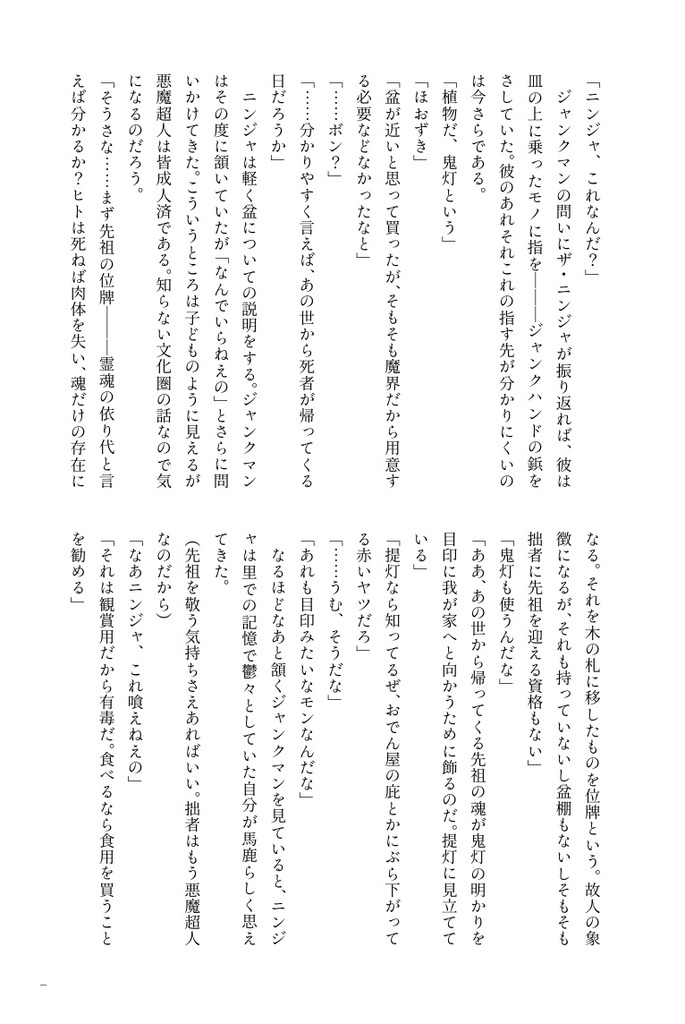 「ニンジャ、これなんだ？」
　ジャンクマンの問いにザ・ニンジャが振り返れば、彼は
皿の上に乗ったモノに指を―――ジャンクハンドの鋲を
さしていた。彼のあれそれこれの指す先が分かりにくいの
は今さらである。
「植物だ、鬼灯という」
「ほおずき」
「盆が近いと思って買ったが、そもそも魔界だから用意す
る必要などなかったなと」
「……ボン？」
「……分かりやすく言えば、あの世から死者が帰ってくる
日だろうか」
　ニンジャは軽く盆についての説明をする。ジャンクマン
はその度に頷いていたが「なんでいらねえの」とさらに問
いかけてきた。こういうところは子どものように見えるが
悪魔超人は皆成人済である。知らない文化圏の話なので気
になるのだろう。
「そうさな……まず先祖の位牌―――霊魂の依り代と言
えば分かるか？ヒトは死ねば肉体を失い、魂だけの存在に
なる。それを木の札に移したものを位牌という。故人の象
徴になるが、それも持っていないし盆棚もないしそもそも
拙者に先祖を迎える資格もない」
「鬼灯も使うんだな」
「ああ、あの世から帰ってくる先祖の魂が鬼灯の明かりを
目印に我が家へと向かうために飾るのだ。提灯に見立てて
いる」
「提灯なら知ってるぜ、おでん屋の庇とかにぶら下がって
る赤いヤツだろ」
「……うむ、そうだな」
「あれも目印みたいなモンなんだな」
　なるほどなあと頷くジャンクマンを見ていると、ニンジ
ャは里での記憶で鬱々としていた自分が馬鹿らしく思え
てきた。
（先祖を敬う気持ちさえあればいい。拙者はもう悪魔超人
なのだから）
「なあニンジャ、これ喰えねえの」
「それは観賞用だから有毒だ。食べるなら食用を買うこと
を勧める」